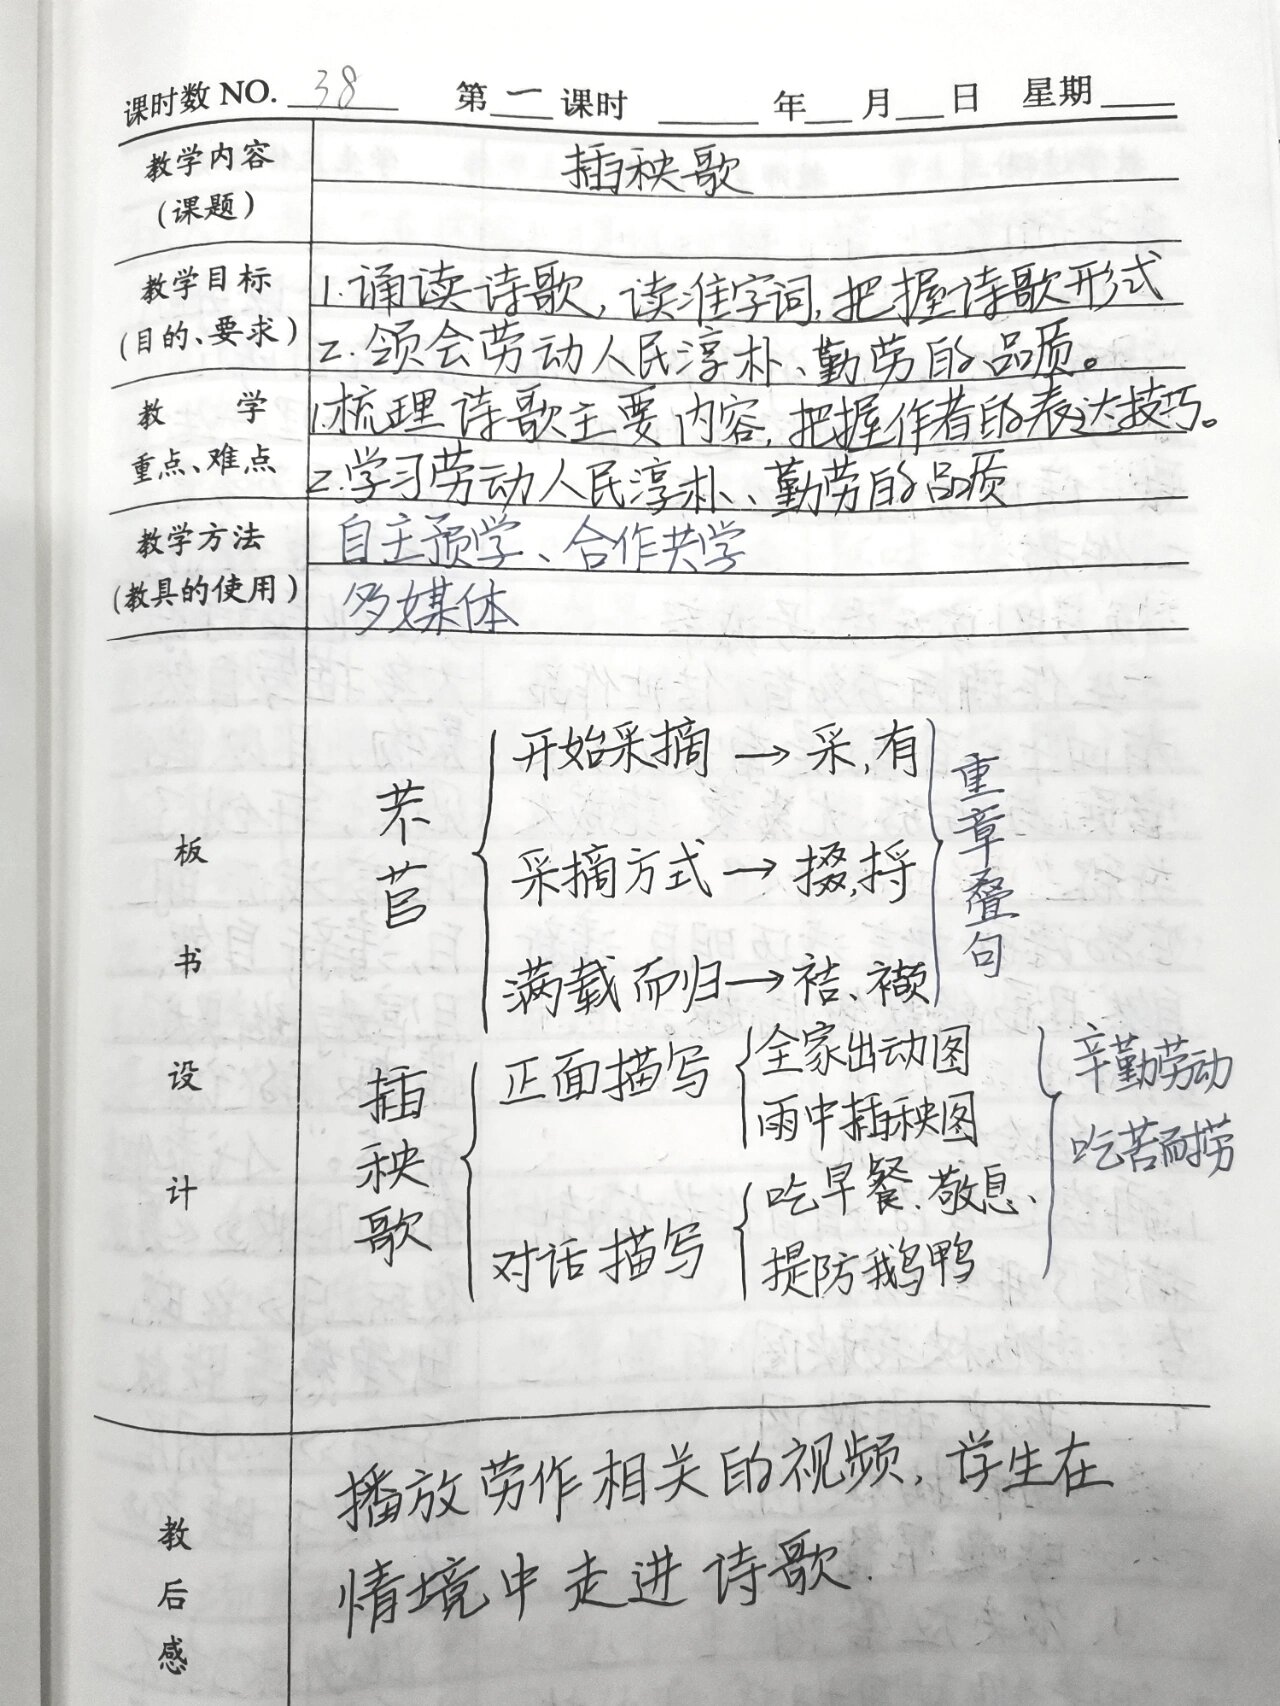 课时数 NO. 38 第一课时 年 月 日 星期
教学内容
(课题)
插秧歌
教学目标
(目的、要求)
1.诵读诗歌,读准字词,把握诗歌形式
2.领会劳动人民淳朴、勤劳的品质。
教 学
重点、难点
1.梳理诗歌主要内容,把握作者的表达技巧。
2.学习劳动人民淳朴、勤劳的品质
教学方法
(教具的使用)
自主预学、合作共学
多媒体
板书设计
芣苢
开始采摘→采,有
采摘方式→掇,捋
满载而归→袺、襭
重章叠句
插秧歌
正面描写
全家出动图
雨中插秧图
对话描写
吃早餐、敬息、
提防鹅鸭
辛勤劳动
吃苦而捞
教后感
播放劳作相关的视频,学生在
情境中走进诗歌.